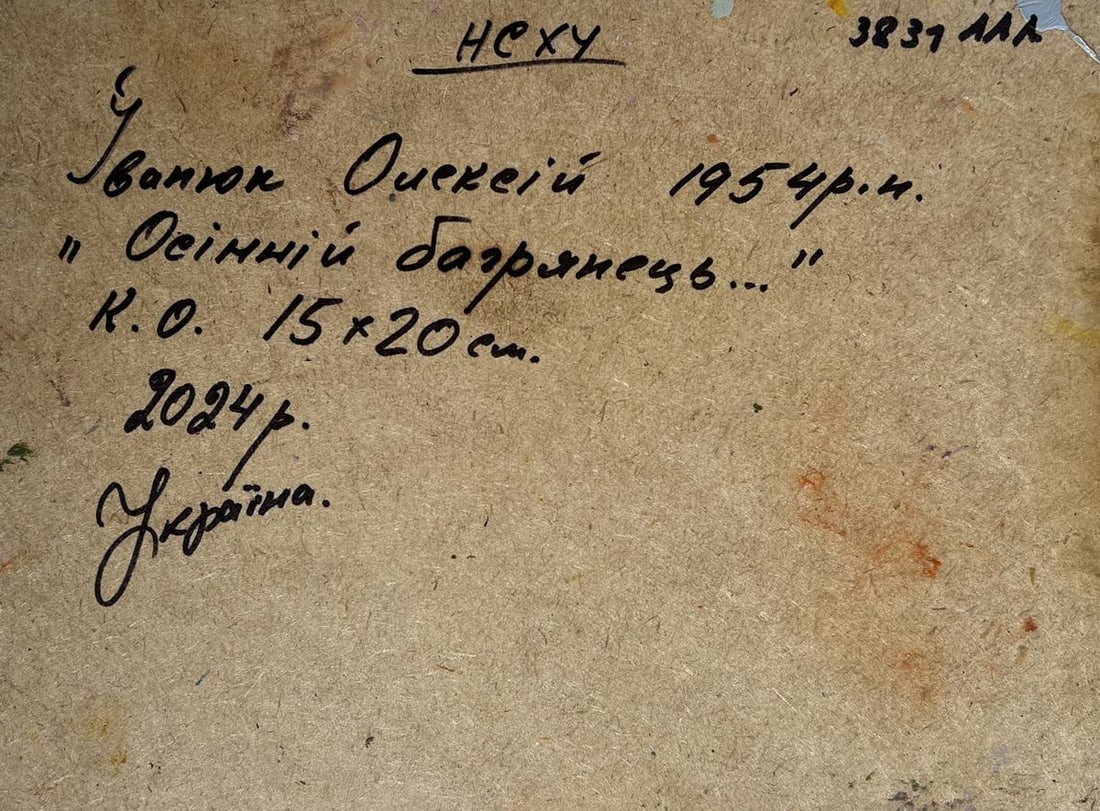 НСХУ
3831 ААА
Іванюк Олексій 1954р.н.
„ Осінній багрянець..."
К.О. 15х20см.
2024р.
Україна.